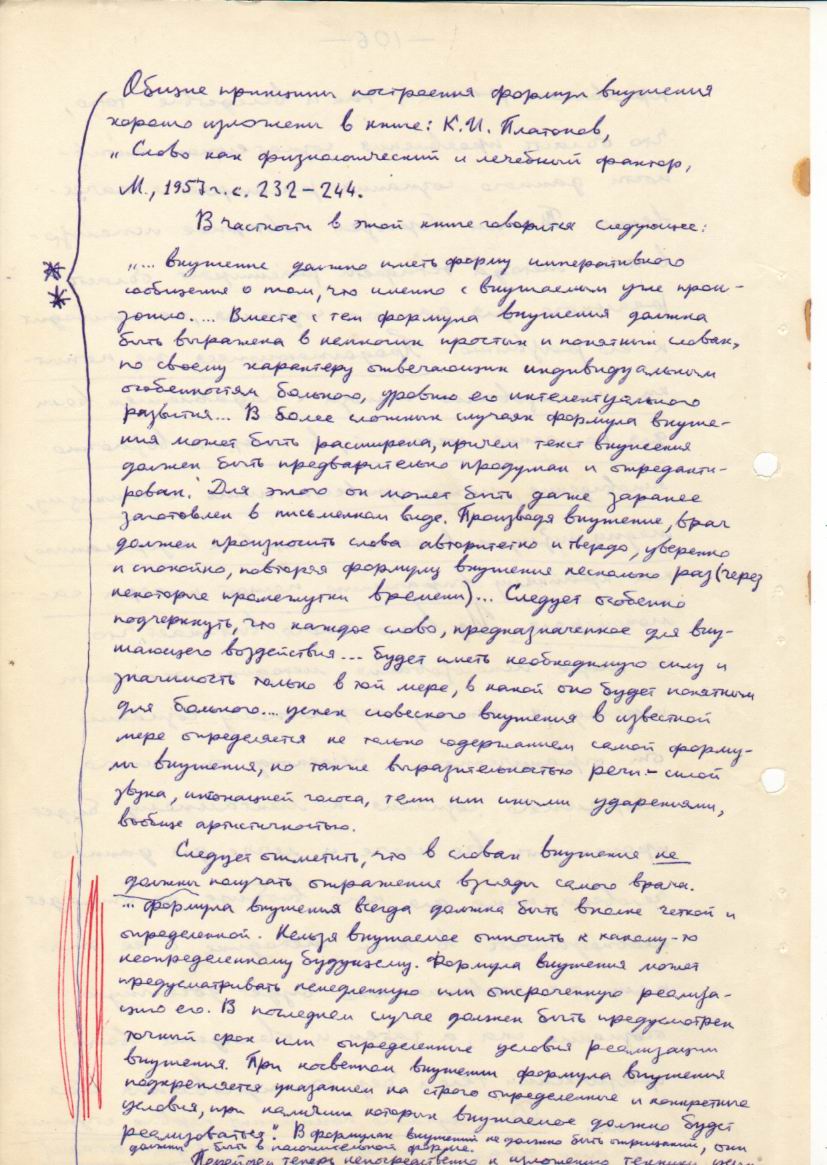 Общие принципы построения формул внушения
хорошо изложены в книге: К.И. Платонов,
„Слово как физиологический и лечебный фактор,
М., 1957 г. с. 232–244.
В частности в этой книге говорится следующее:
**
„... внушение должно иметь форму императивного
сообщения о том, что именно с внушаемым уже прои-
зошло. ... Вместе с тем формула внушения должна
быть выражена в немногих простых и понятных словах,
по своему характеру отвечающих индивидуальным
особенностям больного, уровню его интелектуального
развития... В более сложных случаях формула внуше-
ния может быть расширена, причем текст внушения
должен быть предварительно продуман и отредакти-
рован. Для этого он может быть даже заранее
заготовлен в письменном виде. Производя внушение, врач
должен произносить слова авторитетно и твердо, уверенно
и спокойно, повторяя формулу внушения несколько раз (через
некоторые промежутки времени)... Следует особенно
подчеркнуть, что каждое слово, предназначенное для вну-
шающего воздействия... будет иметь необходимую силу и
значимость только в той мере, в какой оно будет понятным
для больного... успех словесного внушения в известной
мере определяется не только содержанием самой форму-
лы внушения, но также выразительностью речи – силой
звука, интонацией голоса, теми или иными ударениями,
вообще артистичностью.
Следует отметить, что в словах внушения не
должны получать отражения взгляды самого врача.
... формула внушения всегда должна быть вполне четкой и
определенной. Нельзя внушаемое относить к какому-то
неопределенному будущему. Формула внушения может
предусматривать немедленную или отсроченную реализа-
цию его. В последнем случае должен быть предусмотрен
точный срок или определенные условия реализации
внушения. При косвенном внушении формула внушения
подкрепляется указанием на строго определенные и конкретные
условия, при наличии которых внушаемое должно будет
реализоваться". В формулах внушений не должно быть отрицаний, они
должны быть в положительной форме.
Перейдем теперь непосредственно к изложению техники